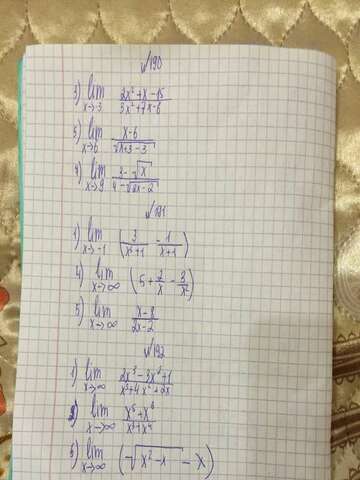 №190
3) lim x→-3 (2x²+x-15)/(3x²+7x-6)
5) lim x→6 (x-6)/(√(x+3)-3)
7) lim x→9 (3-√x)/(4-√(2x-2))
№191
1) lim x→-1 (3/(x³+1) - 1/(x+1))
4) lim x→∞ (5+2/x-3/x²)
5) lim x→∞ (x-8)/(2x-2)
№192
1) lim x→∞ (2x³-3x²+1)/(x³+4x²+2x)
3) lim x→∞ (x⁵+x⁶)/(x³+x⁴)
5) lim x→∞ (√(x²-1)-x)